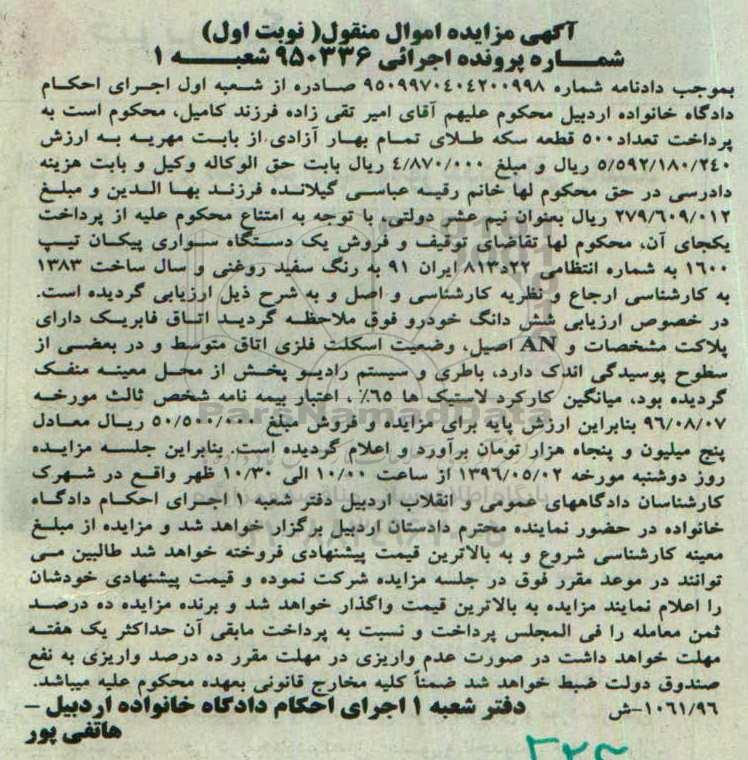 آگهی مزایده اموال منقول( نوبت اول)
شماره پرونده اجرائی ۹۵۰۳۳۶ شعبه ۱
بموجب دادنامه شماره ۹۵۰۹۹۷۰۴۰۴۲۰۰۹۹۸ صادره از شعبه اول اجرای احکام
دادگاه خانواده اردبیل محکوم علیهم آقای امیر تقی زاده فرزند کامیل، محکوم است به
پرداخت تعداد۵۰۰ قطعه سکه طلای تمام بهار آزادی از بابت مهریه به ارزش
۵/۵۹۲/۱۸۰/۲۴۰ ریال و مبلغ ۴/۸۷۰/۰۰۰ ریال بابت حق الوکاله وکیل و بابت هزینه
دادرسی در حق محکوم لها خانم رقیه عباسی گیلانده فرزند بها الدین و مبلغ
۲۷۹/۶۰۹/۰۱۲ ریال بعنوان نیم عشر دولتی، با توجه به امتناع محکوم علیه از پرداخت
یکجای آن، محکوم لها تقاضای توقیف و فروش یک دستگاه سواری پیکان تیپ
۱۶۰۰ به شماره انتظامی ۲۲د۸۱۳ ایران ۹۱ به رنگ سفید روغنی و سال ساخت ۱۳۸۳
به کارشناسی ارجاع و نظریه کارشناسی و اصل و به شرح ذیل ارزیابی گردیده است.
در خصوص ارزیابی شش دانگ خودرو فوق ملاحظه گردید اتاق فابریک دارای
پلاکت مشخصات و AN اصیل، وضعیت اسکلت فلزی اتاق متوسط و در بعضی از
سطوح پوسیدگی اندک دارد، باطری و سیستم رادیو پخش از محل معینه منفک
گردیده بود، میانگین کارکرد لاستیک ها ۶۵٪ ، اعتبار بیمه نامه شخص ثالث مورخه
۹۶/۰۸/۰۷ بنابراین ارزش پایه برای مزایده و فروش مبلغ ۵۰/۵۰۰/۰۰۰ ریال معادل
پنج میلیون و پنجاه هزار تومان برآورد و اعلام گردیده است. بنابراین جلسه مزایده
روز دوشنبه مورخه ۱۳۹۶/۰۵/۰۲ از ساعت ۱۰/۰۰ الی ۱۰/۳۰ ظهر واقع در شهرک
کارشناسان دادگاههای عمومی و انقلاب اردبیل دفتر شعبه ۱ اجرای احکام دادگاه
خانواده در حضور نماینده محترم دادستان اردبیل برگزار خواهد شد و مزایده از مبلغ
معینه کارشناسی شروع و به بالاترین قیمت پیشنهادی فروخته خواهد شد طالبین می
توانند در موعد مقرر فوق در جلسه مزایده شرکت نموده و قیمت پیشنهادی خودشان
را اعلام نمایند مزایده به بالاترین قیمت واگذار خواهد شد و برنده مزایده ده درصد
ثمن معامله را فی المجلس پرداخت و نسبت به پرداخت مابقی آن حداکثر یک هفته
مهلت خواهد داشت در صورت عدم واریزی در مهلت مقرر ده درصد واریزی به نفع
صندوق دولت ضبط خواهد شد ضمناً کلیه مخارج قانونی بعهده محکوم علیه میباشد.
۱۰۶۱/۹۶-ش دفتر شعبه ۱ اجرای احکام دادگاه خانواده اردبیل –
هاتفی پور
ParsNamadData